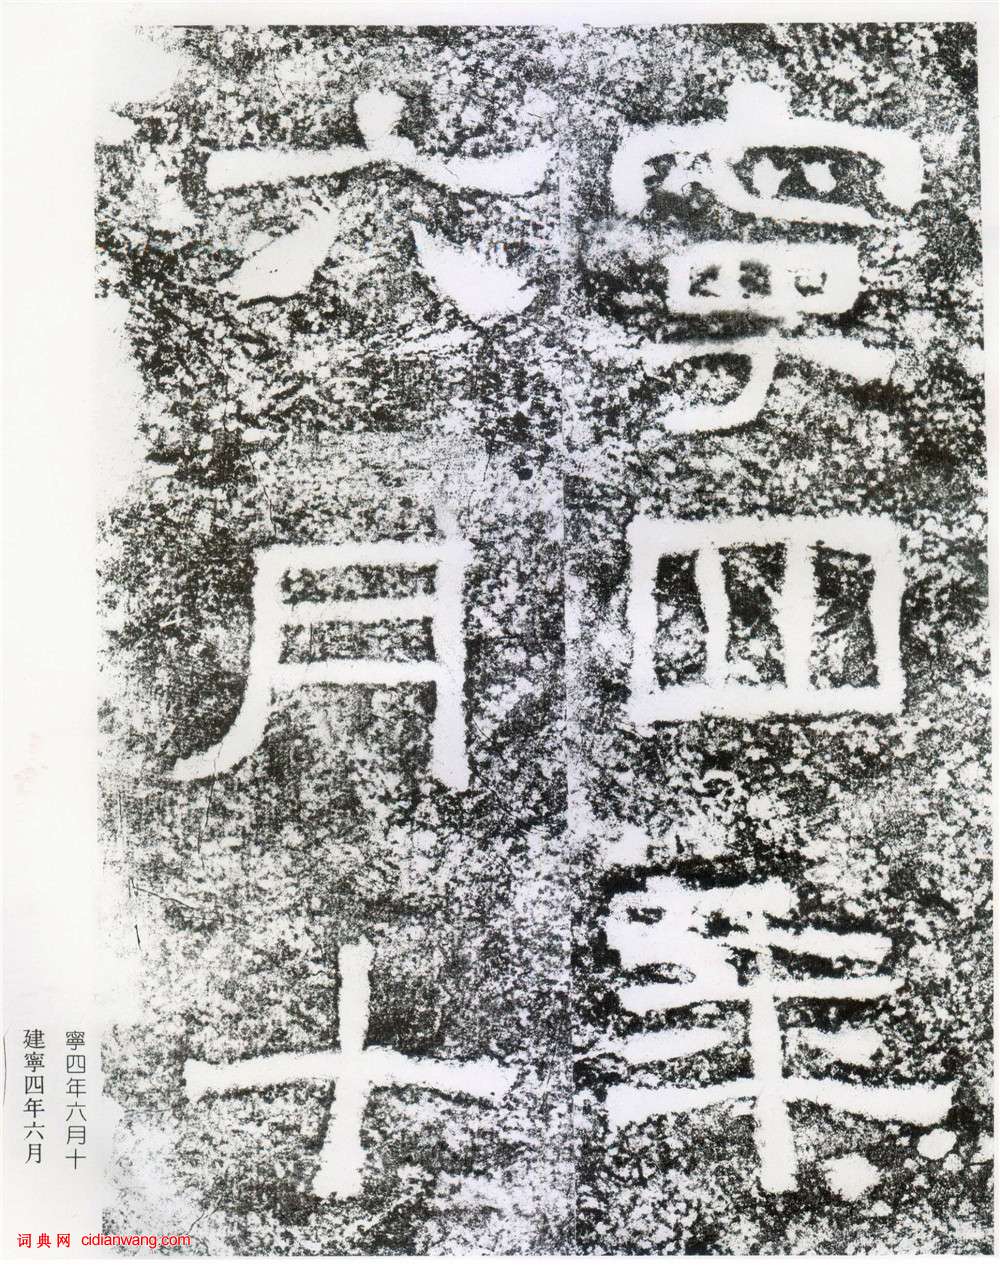 寧四年
六月十
寧四年六月十
建寧四年六月
词典网 cidianwang.com